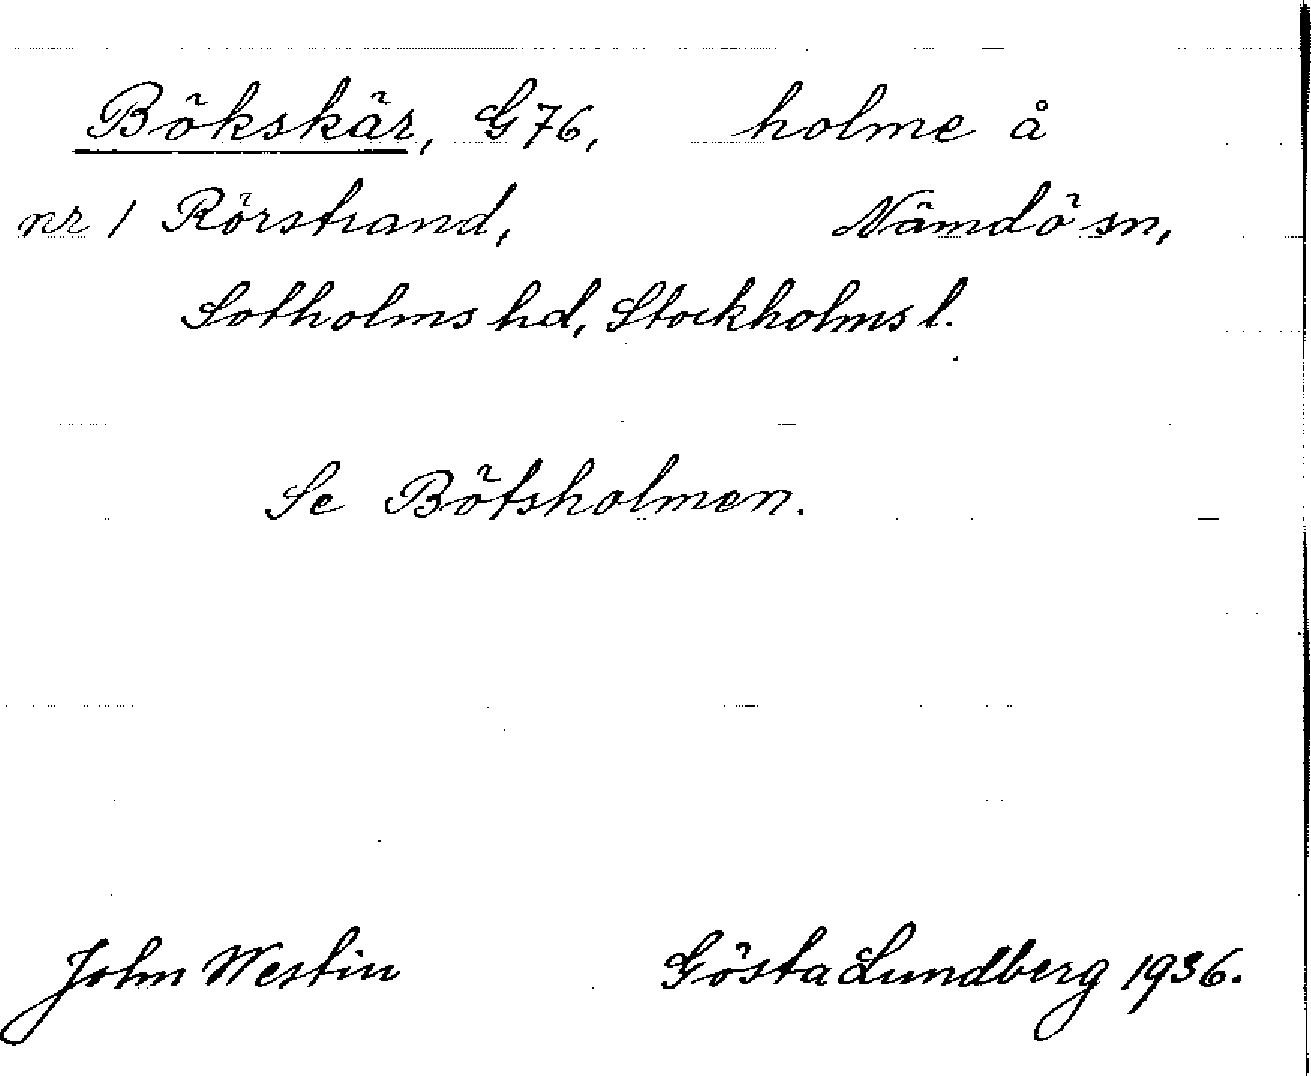 Bökskär, G76, holme å
nr 1 Rörstrand, Nämdö sn,
Sotholms hd, Stockholms l.
Se Bötsholmen.
John Westin Gösta Lundberg 1936.